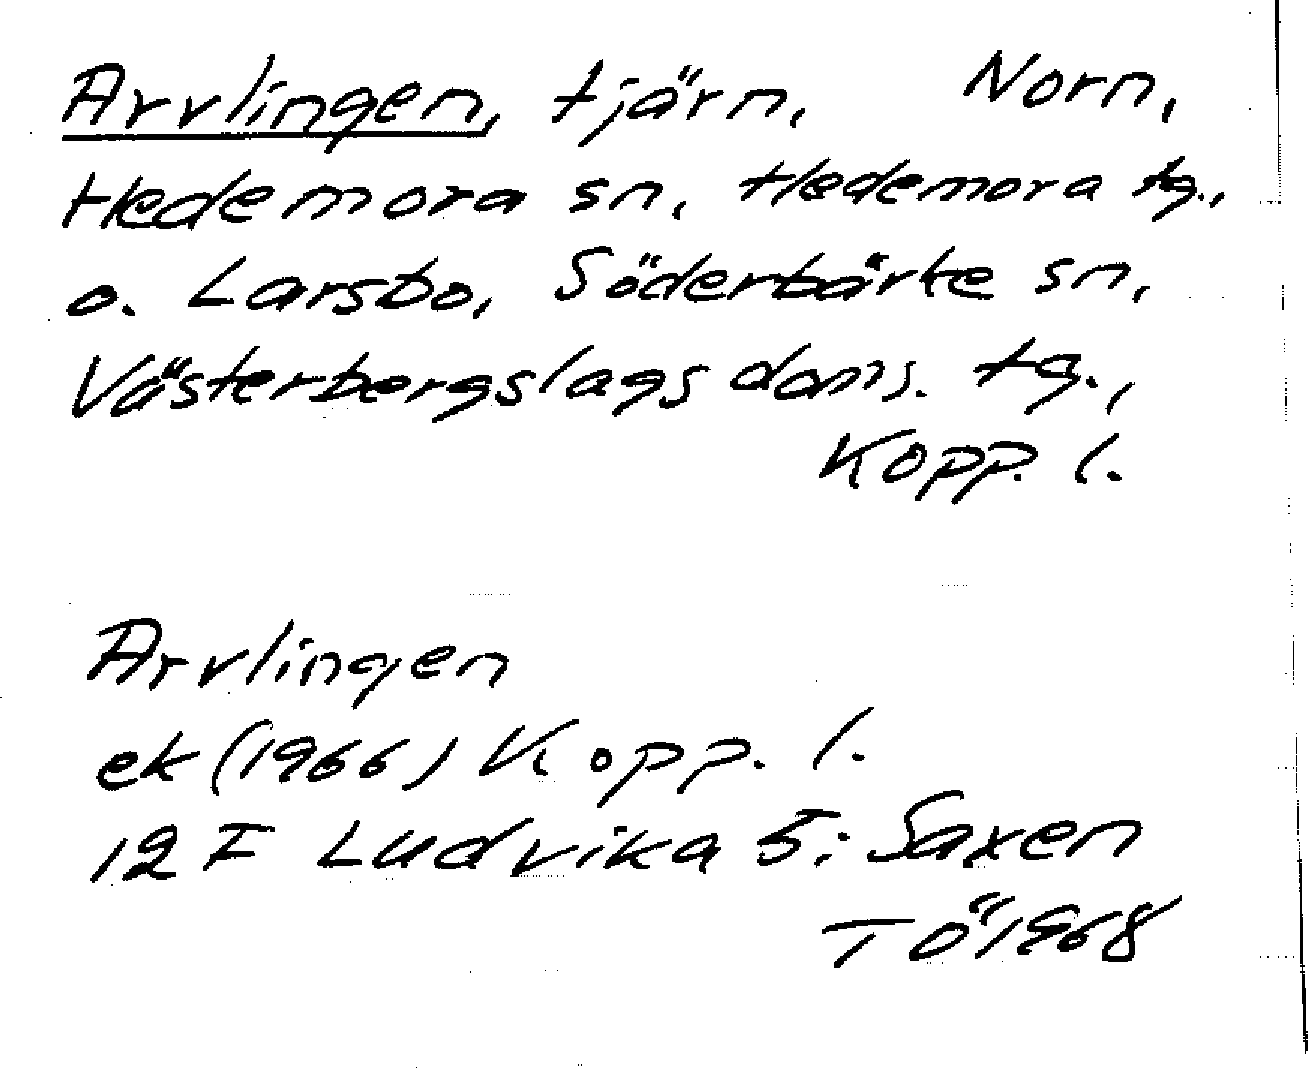 Arvlingen, tjärn, Norn,
Hedemora sn, Hedemora tg.,
o. Larsbo, Söderbärke sn,
Västerbergslags doms. tg.,
Kopp. l.
Arvlingen
ek (1966) Kopp. l.
12 F Ludvika 5i Saxen
TÖ 1968